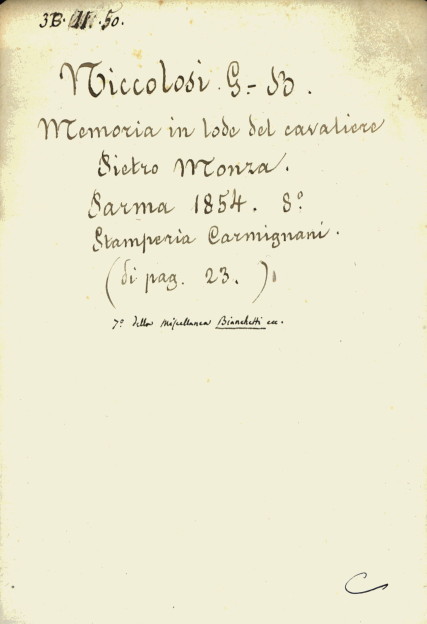 3B. II. 50.
Niccolosi G-B.
Memoria in lode del cavaliere
Pietro Monza.
Parma 1854. 8º
Stamperia Carmignani.
(di pag. 23.)
7º della Miscellanea Bianchetti ecc.